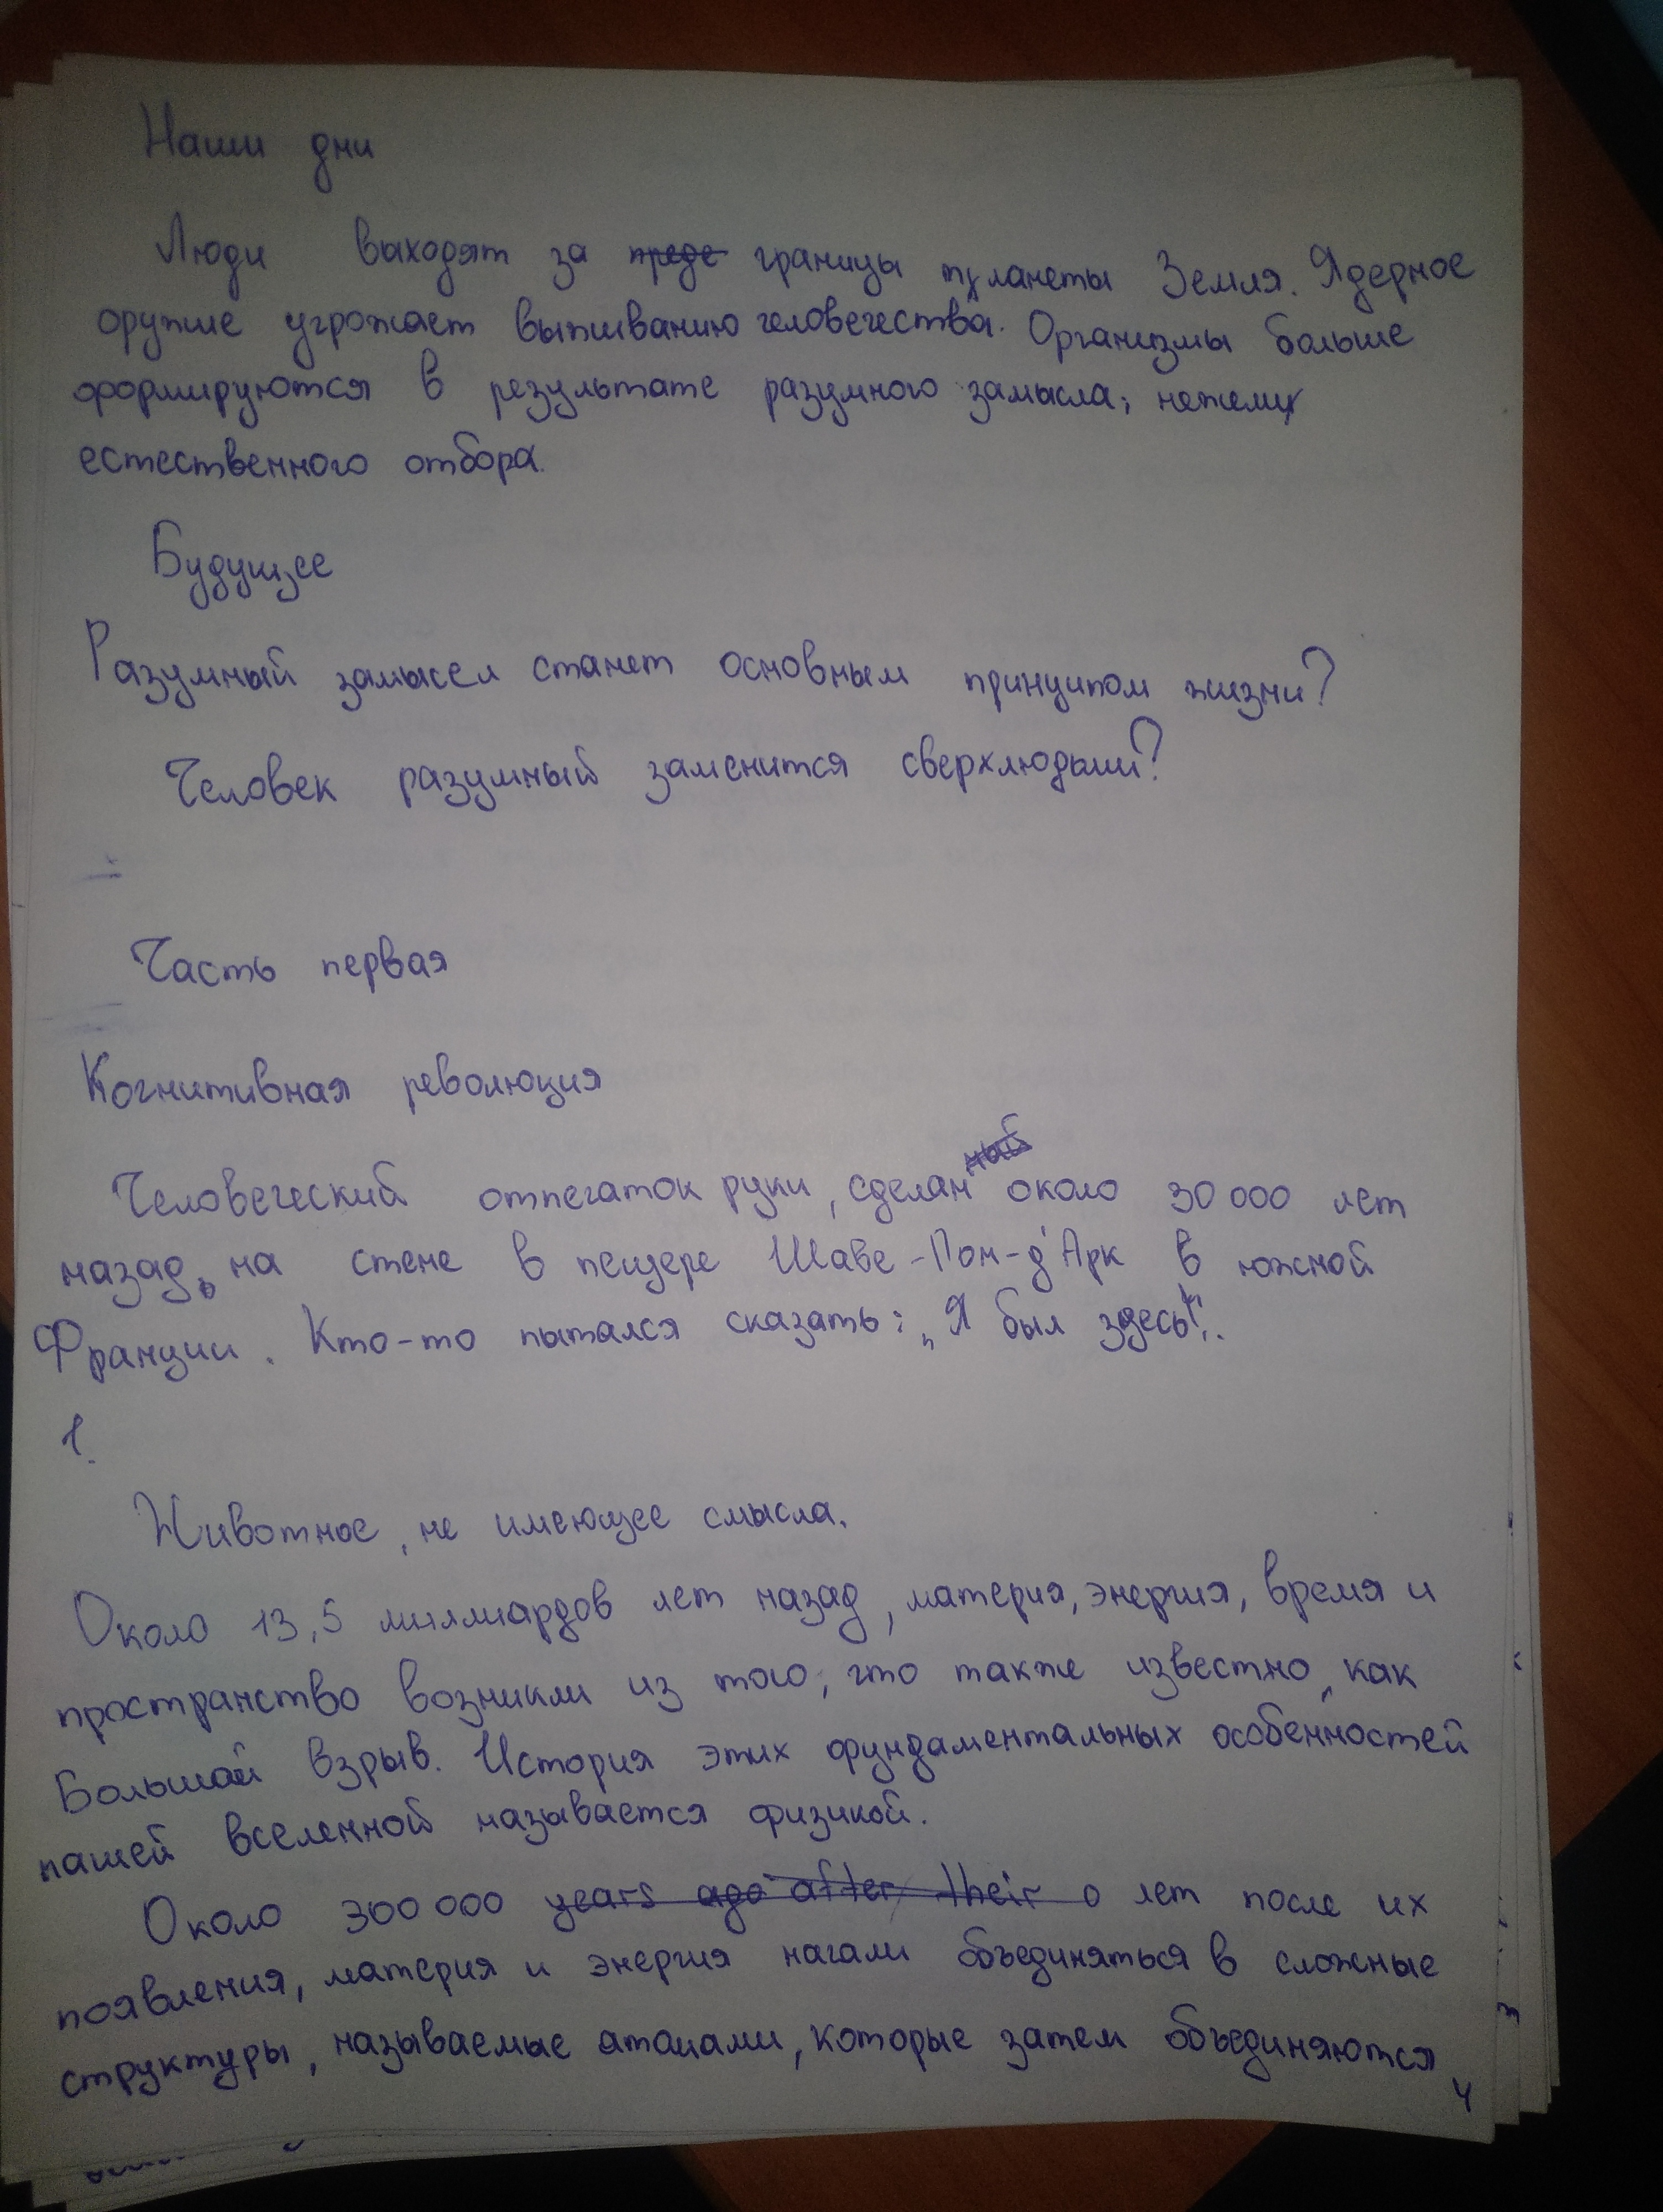 Наши дни
Люди выходят за преде границы планеты Земля. Ядерное
оружие угрожает выживанию человечества. Организмы больше
формируются в результате разумного замысла, нежели
естественного отбора.
Будущее
Разумный замысел станет основным принципом жизни?
Человек разумный заменится сверхлюдьми?
Часть первая
Когнитивная революция
Человеческий отпечаток руки, сделанный около 30 000 лет
назад, на стене в пещере Шаве-Пон-д'Арк в южной
Франции. Кто-то пытался сказать: „Я был здесь!".
1.
Животное, не имеющее смысла.
Около 13,5 миллиардов лет назад, материя, энергия, время и
пространство возникли из того, что также известно, как
Большой взрыв. История этих фундаментальных особенностей
нашей вселенной называется физикой.
Около 300 000 years ago after their о лет после их
появления, материя и энергия начали объединяться в сложные
структуры, называемые атомами, которые затем объединяются
4